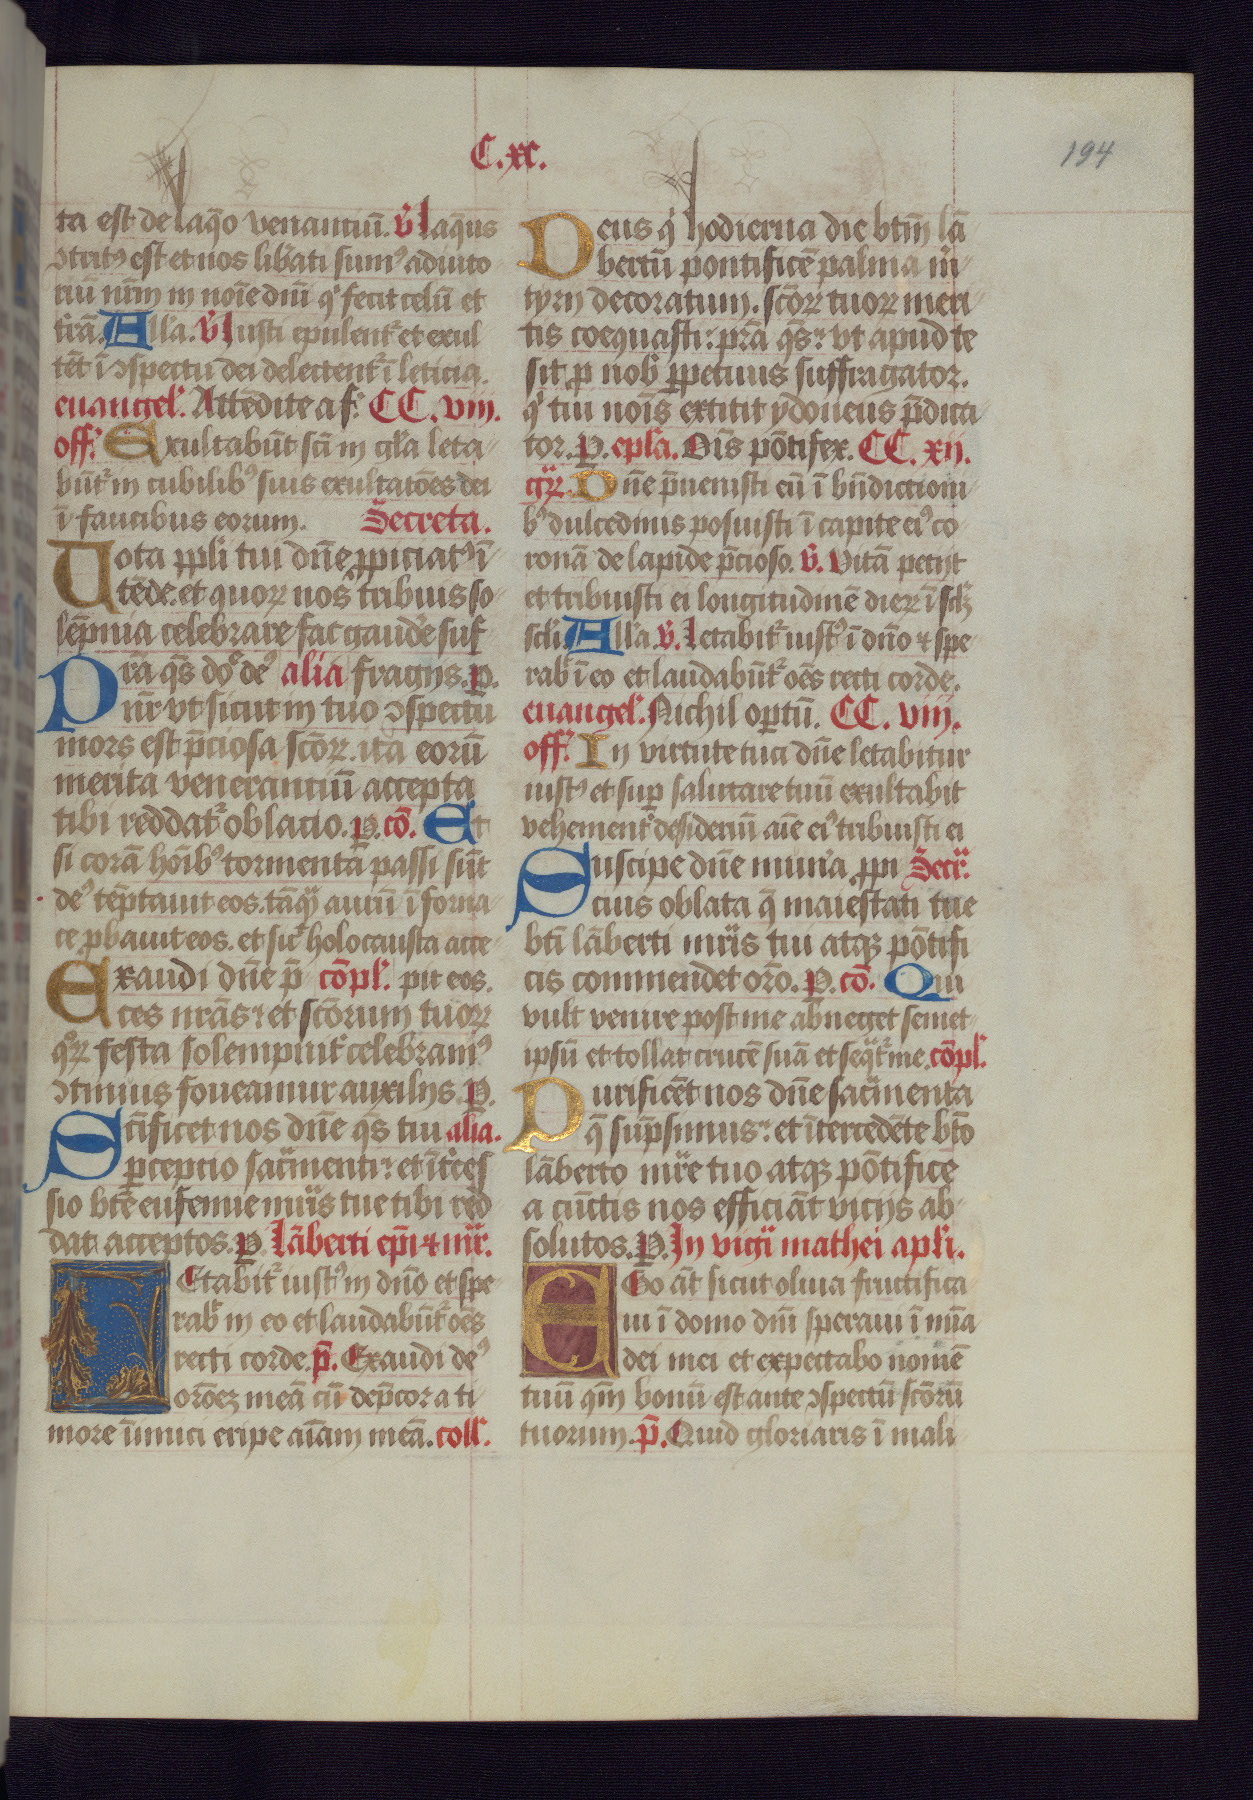 C.xc.
194
ta est de laq̄o venantiū. v̄ laq̄us
ↄtritꝰ est et nos lib̄ati sumꝰ adiuto
riū nr̄m in noīe dn̄i qͥ fecit celū et
t̄rā. Alla. v̄ Iusti epulent᷑ et exul
tēt ī ↄspectu dei delectent᷑ ī leticia.
euangel᷑. Attēdite a f᷑. CC. viij.
off᷑. Exultabūt sc̄i in gl̄a leta
būt᷑ in cubilibꝰ suis exultatōes dei
ī faucibus eorum. Secreta.
Uota ppl̄i tui dn̄e ꝓpiciatꝰ ī
tēde. et quoꝝ nos tribuis so
lēpnia celebrare fac gaud̄e suf
Pr̄a q̄s dō deꝰ alia fragijs. P.
nr̄ vt sicut in tuo ↄspectu
mors est p̄ciosa sc̄oꝝ. ita eorū
merita venerantiū accepta
tibi reddat᷑ oblacio. P. cō. Et
si corā hoīb᷒ tormenta passi sūt
deꝰ tēptauit eos. tāqͣ aurū ī forna
ce ꝓbauit eos. et sic᷑ holocausta acce
Exaudi dn̄e p̄ cōpl᷑. pit eos.
ces nr̄as: et sc̄orum tuoꝝ
qͦꝝ festa solempnit᷑ celebramꝰ
ↄtinuis foueamur auxilijs. P.
Sc̄ificet nos dn̄e q̄s tui alia.
ꝑceptio sac̄menti: et īt̄ces
sio bt̄e eufemie mr̄is tue tibi red
dat acceptos. P. lāberti ep̄i ⁊ mr̄.
Letabit᷑ iustꝰ in dn̄o et spe
rab᷑ in eo et laudabūt᷑ oēs
recti corde. p̄. Exaudi deꝰ
orōeꝫ meā cū dep̄cor a ti
more īimici eripe aīam meā. coll᷑.
Deus qͥ hodierna die btm̄ lā
bertū pontificē palma mr̄
tyrij decoratum. sc̄oꝝ tuoꝝ meri
tis coequasti: pr̄a q̄s: vt apud te
sit ꝓ nob᷑ ꝑpetuus suffragator.
qͥ tui nois extitit ydoneus p̄dica
tor. P. epl̄a. Oīs pōtifex. CC. xij.
gͣꝝ. Dn̄e p̄uenisti eū ī bn̄dictioni
bꝰ dulcedinis posuisti ī capite eiꝰ co
ronā de lapide p̄cioso. v̄. Vitā petijt
et tribuisti ei longitudinē dieꝝ ī scl̄ꝫ
scl̄i. Alla. v̄. letabit᷑ iustꝰ ī dn̄o ⁊ spe
rab᷑ ī eo et laudabūt᷑ oēs recti corde.
euangel᷑. Nichil optū. CC. viij.
off᷑. In virtute tua dn̄e letabitur
iustꝰ et suꝑ salutare tuū exultabit
vehement᷑ desideriū aīe eiꝰ tribuisti ei
Suscipe dn̄e mun̄a ppi Secr᷑.
cius oblata q̄ maiestati tue
bt̄i lāberti mr̄is tui atqꝫ pōtifi
cis commendet or̄o. P. cō. Qui
vult venire post me abneget semet
ipsū et tollat crucē suā et seqͣt᷑ me. cōpl᷑.
Purificēt nos dn̄e sac̄menta
q̄ sūpsimus: et ītercedēte bt̄o
lāberto mr̄e tuo atqꝫ pōtifice
a cūctis nos efficiāt vicijs ab
solutos. P. In vigͣi mathei apl̄i.
Ego āt sicut oliua fructifica
ui ī domo dn̄i speraui ī mīa
dei mei et expectabo nomē
tuū qm̄ bonū est ante ↄspectū sc̄orū
tuorum. p̄. Quid gloriaris ī mali